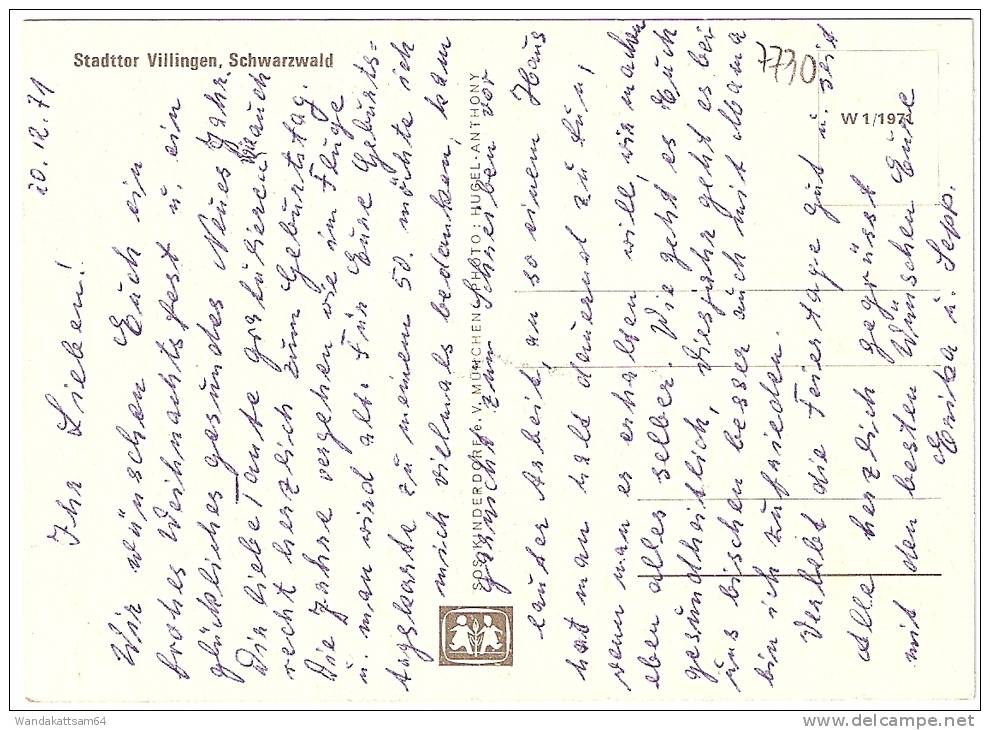 Stadttor Villingen, Schwarzwald
7730
W 1/1971
SOS-KINDERDORF e.V. MÜNCHEN PHOTO: HUGEL-ANTHONY
20.12.71
Ihr Lieben!
Wir wünschen Euch ein
frohes Weihnachtsfest u. ein
glückliches gesundes Neues Jahr.
Dir liebe Tante gratulieren wir auch
recht herzlich zum Geburtstag.
Die Jahre vergehen wie im Fluge
u. man wird alt. Für Eure Geburts=
tagskarte zu meinem 50. möchte ich
mich vielmals bedanken, kam
gar nicht zum Schreiben vor
lauter Arbeit, an so einem Haus
hat man halt dauernd zu tun,
wenn man es erhalten will, wir machen
eben alles selber. Wie geht es Euch
gesundheitlich, dies Jahr geht es bei
uns bischen besser auch mit Mama
bin ich zufrieden.
Verlebt die Feiertage gut u. seit
alle herzlich gegrüsst
mit den besten Wünschen Eure
Erika u. Sepp.
Wandakattsam64
delcampe.net